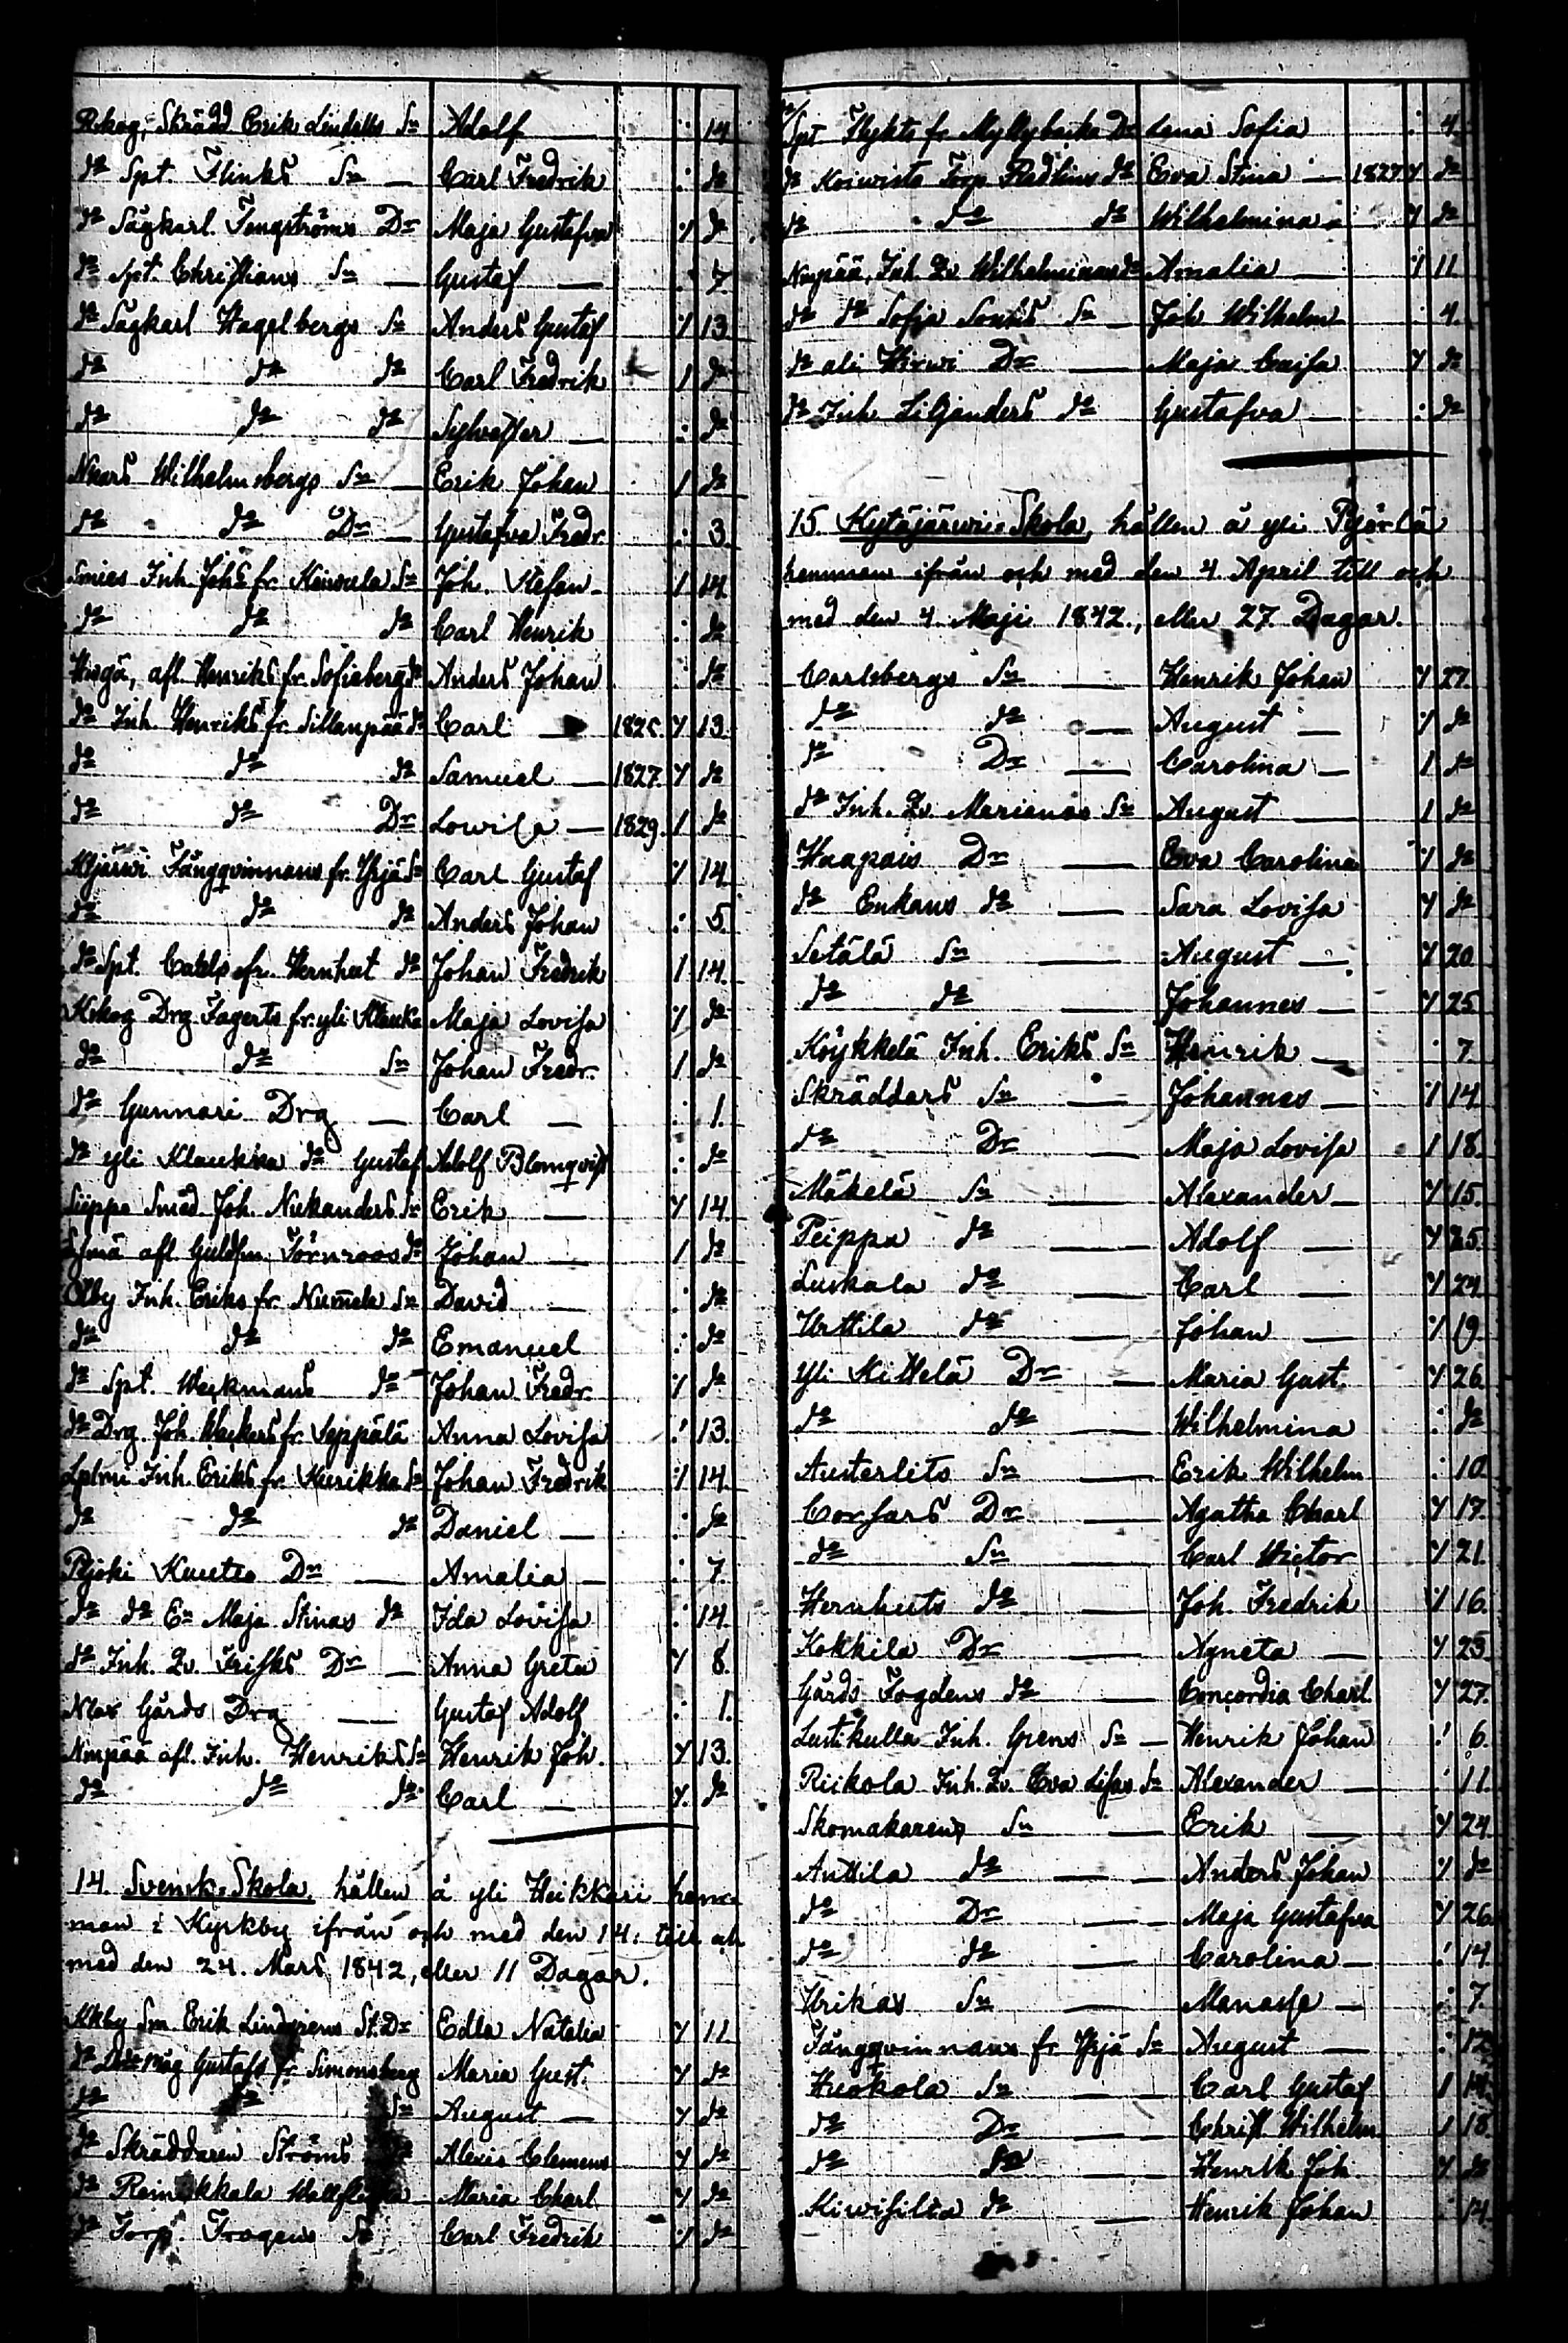 Rskog, Skrädd Erik Lindells Sn Adolf — : 14
do Spt. Flinks Sn — Carl Fredrik : do
do Sågkarl. Tengströms Dr Maja Gustafva 7 do
do Spt. Christians Sn — Gustaf — : 7.
do Sågkarl Hagelbergs Sn Anders Gustaf 7 13
do do do Carl Fredrik 1 do
do do do Sylvester — : do
Nkars Wilhelmsbergs Sn — Erik Johan 1 do
do do Dr — Gustafva Fredr. : 3.
Smies Inh. Johs fr. Keinula Sn Joh. Stefan - 1 14.
do do do Carl Henrik : do
afl. Henriks fr. Sofieberg do Anders Johan : do
do Inh. Henriks fr. Sillanpää do Carl — 1825. 7 13.
do do do Samuel — 1827. 7 do
do do Dr Lovisa — 1829. 1 do
Kljärwi Fångqvinnans fr. Yrjä Sn Carl Gustaf 7 14.
do do do Anders Johan : 5.
do Spt. fr. Hernhut do Johan Fredrik 1 14.
Kskog Drg. Fagerts fr. yli Klauka Maja Lovisa 7 do
do do Sn Johan Fredr. 1 do
do Gunnari Drg — Carl — : 1.
do yli Klaukka do Gustaf Adolf Blomqvist : do
Sieppo Smed. Joh. Nukanders Sn Erik — 7 14.
afl Guldsm. Törnroos do Johan — 1 do
Olby Inh. Eriks fr. Numela Sn David — : do
do do do Emanuel : do
do Spt. Weckmans do Johan Fredr. 7 do
do Drg. Joh. fr. Seppälä Anna Lovisa : 13.
Inh. Eriks fr. Kurikka Sn Johan Fredrik 7 14.
do do do Daniel — : do
Pljoki Knuts Dr — Amalia — : 7.
do do En Maja Stinas do Ida Lovisa : 14.
do Inh. Qv. Frisks Dr — Anna Greta 7 8.
Nlax Gårds Drg — Gustaf Adolf : 1.
Nmpää afl. Inh. Henriks Sn Henrik Joh. 7 13.
do do do Carl — 7. do
14. Svensk-Skola, hållen å yli Heikkari hem-
man i Kyrkby ifrån och med den 14. till och
med den 24. Mars 1842, eller 11 Dagar.
Kkby Sm. Erik Lindgrens St. Dr Edla Natalia 7 11
do Måg Gustafs fr. Simonsberg Maria Gust. 7 do
do do Sn August — 7 do
do Skräddaren Ströms do Alexis Clemens 7 do
do Maria Charl. 7 do
do Torp. Trogens Sn Carl Fredrik 7 do
Spt Flykts fr. Myllybacka Dr Lena Sofia : 4.
do Koiwisto Torp. Redlins do Eva Stina — 1827 7 do
do do do Wilhelmina - 7 do
Nmpää, Inh. Qv. Wilhelminas do Amalia — 7 11
do do Sofia Sn — Joh. Wilhelm : 4.
do ali Hirwi Dr — Maja Caisa 7 do
do Inh. Liljanders do Gustafva — : do
15. Kytäjärwi-Skola, hållen å yli Pljärlä
hemman ifrån och med den 4 April till och
med den 4 Maji 1842., eller 27 Dagar.
Carlsbergs Sn — Henrik Johan 7 27.
do do — August — 7 do
do Dr — Carolina — 1 do
do Inh. Qv. Marianas Sn August — 1 do
Haapais Dr — Eva Carolina 7 do
do Enkans do — Sara Lovisa 7 do
Setälä Sn — August — 7 20
do do Johannes — 7 25
Köykkelä Inh. Eriks Sn Henrik — : 7.
Skräddars Sn — Johannes — 7 14
do Dr — Maja Lovisa 1 18.
Mäkelä Sn — Alexander — 7 15.
Peippa do — Adolf — 7 25.
Luskala do — Carl — 7 24
Urttila do — Johan — 7 19
Yli Kittelä Dr — Maria Gust. 7 26.
do do — Wilhelmina : do
Austerlits Sn — Erik Wilhelm : 10.
Corsars Dr — Agatha Charl 7 17.
do Sn — Carl Victor 7 21.
Hernhuts do — Joh. Fredrik 7 16.
Kokkila Dr — Agneta — 7 23.
Gårds Fogdens do — Concordia Charl. 7 27.
Lustikulla Inh. Grens Sn — Henrik Johan : 6.
Riikola Inh. Qv. Eva Lisas Sn Alexander — : 11.
Skomakarens Sn — Erik — 7 24.
Anttila do — Anders Johan 7 do
do Dr — Maja Gustafva 7 26.
do do — Carolina — : 14.
Urikas Sn — Manasse — : 7.
Fångqvinnans fr. Yrjä Sn August — : 12.
Huokola Sn — Carl Gustaf 1 14.
do Dr — Christ. Wilhelm. 1 18.
do Sn — Henrik Joh. 7 do
Kiwisilta do — Henrik Johan : 14.